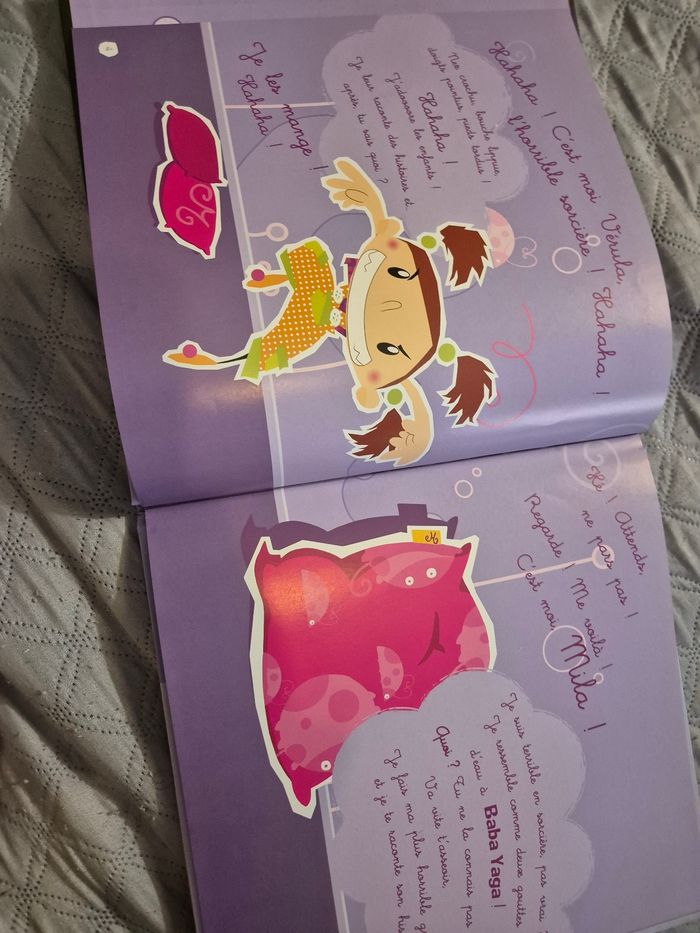 Hahaha ! C'est moi Vérula,
l'horrible sorcière ! Hahaha !
Nez crochu, bouche lippue,
doigts pointus, pieds tordus !
Hahaha !
J'adoooore les enfants !
Je leur raconte des histoires et
après, tu sais quoi ?
Je les mange !
Hahaha !
Hé ! Attends,
ne pars pas !
Regarde ! Me voilà !
C'est moi, Mila !
Je suis terrible en sorcière, pas vrai ?
Je ressemble comme deux gouttes
d'eau à Baba Yaga !
Quoi ? Tu ne la connais pas
Va vite t'asseoir,
Je fais ma plus horrible
et je te raconte son